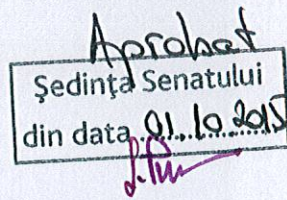 Aprobat
Ședința Senatului
din data 01.10.2015